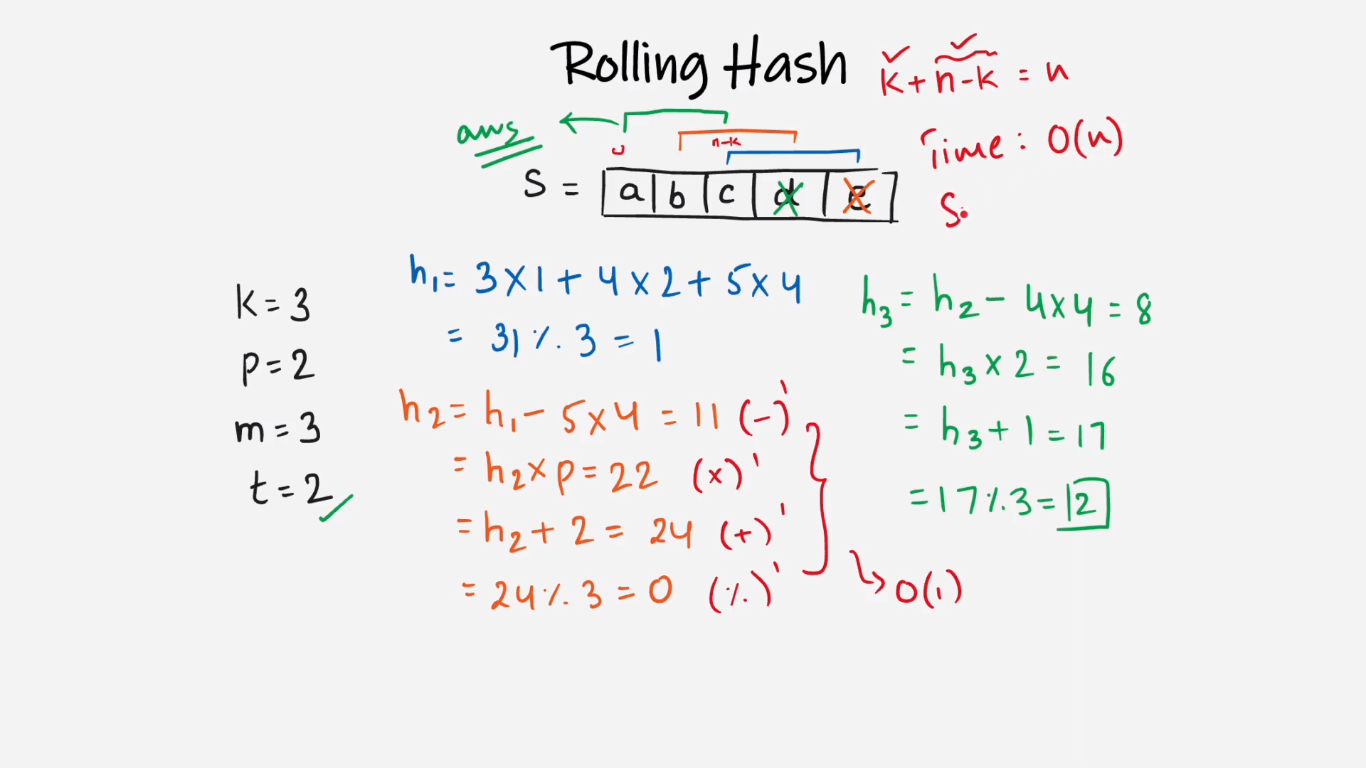 Rolling Hash
k + n-k = n
ans
n-k
Time : O(n)
S = a b c d e
S:
k = 3
p = 2
m = 3
t = 2
h1 = 3 x 1 + 4 x 2 + 5 x 4
= 31 % 3 = 1
h2 = h1 - 5 x 4 = 11 (-)'
= h2 x p = 22 (x)'
= h2 + 2 = 24 (+)'
= 24 % 3 = 0 (%)'
O(1)
h3 = h2 - 4 x 4 = 8
= h3 x 2 = 16
= h3 + 1 = 17
= 17 % 3 = 2